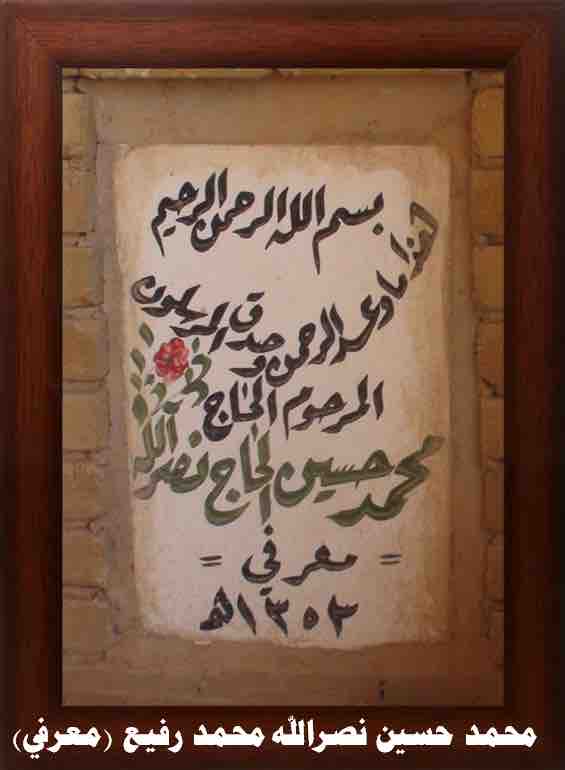 بسم الله الرحمن الرحيم
هذا ما وعد الرحمن وصدق المرسلون
المرحوم الحاج
محمد حسين الحاج نصرالله
= معرفي =
١٣٥٣هـ
محمد حسين نصرالله محمد رفيع (معرفي)